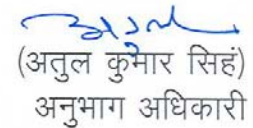 (अतुल कुमार सिहं)
अनुभाग अधिकारी